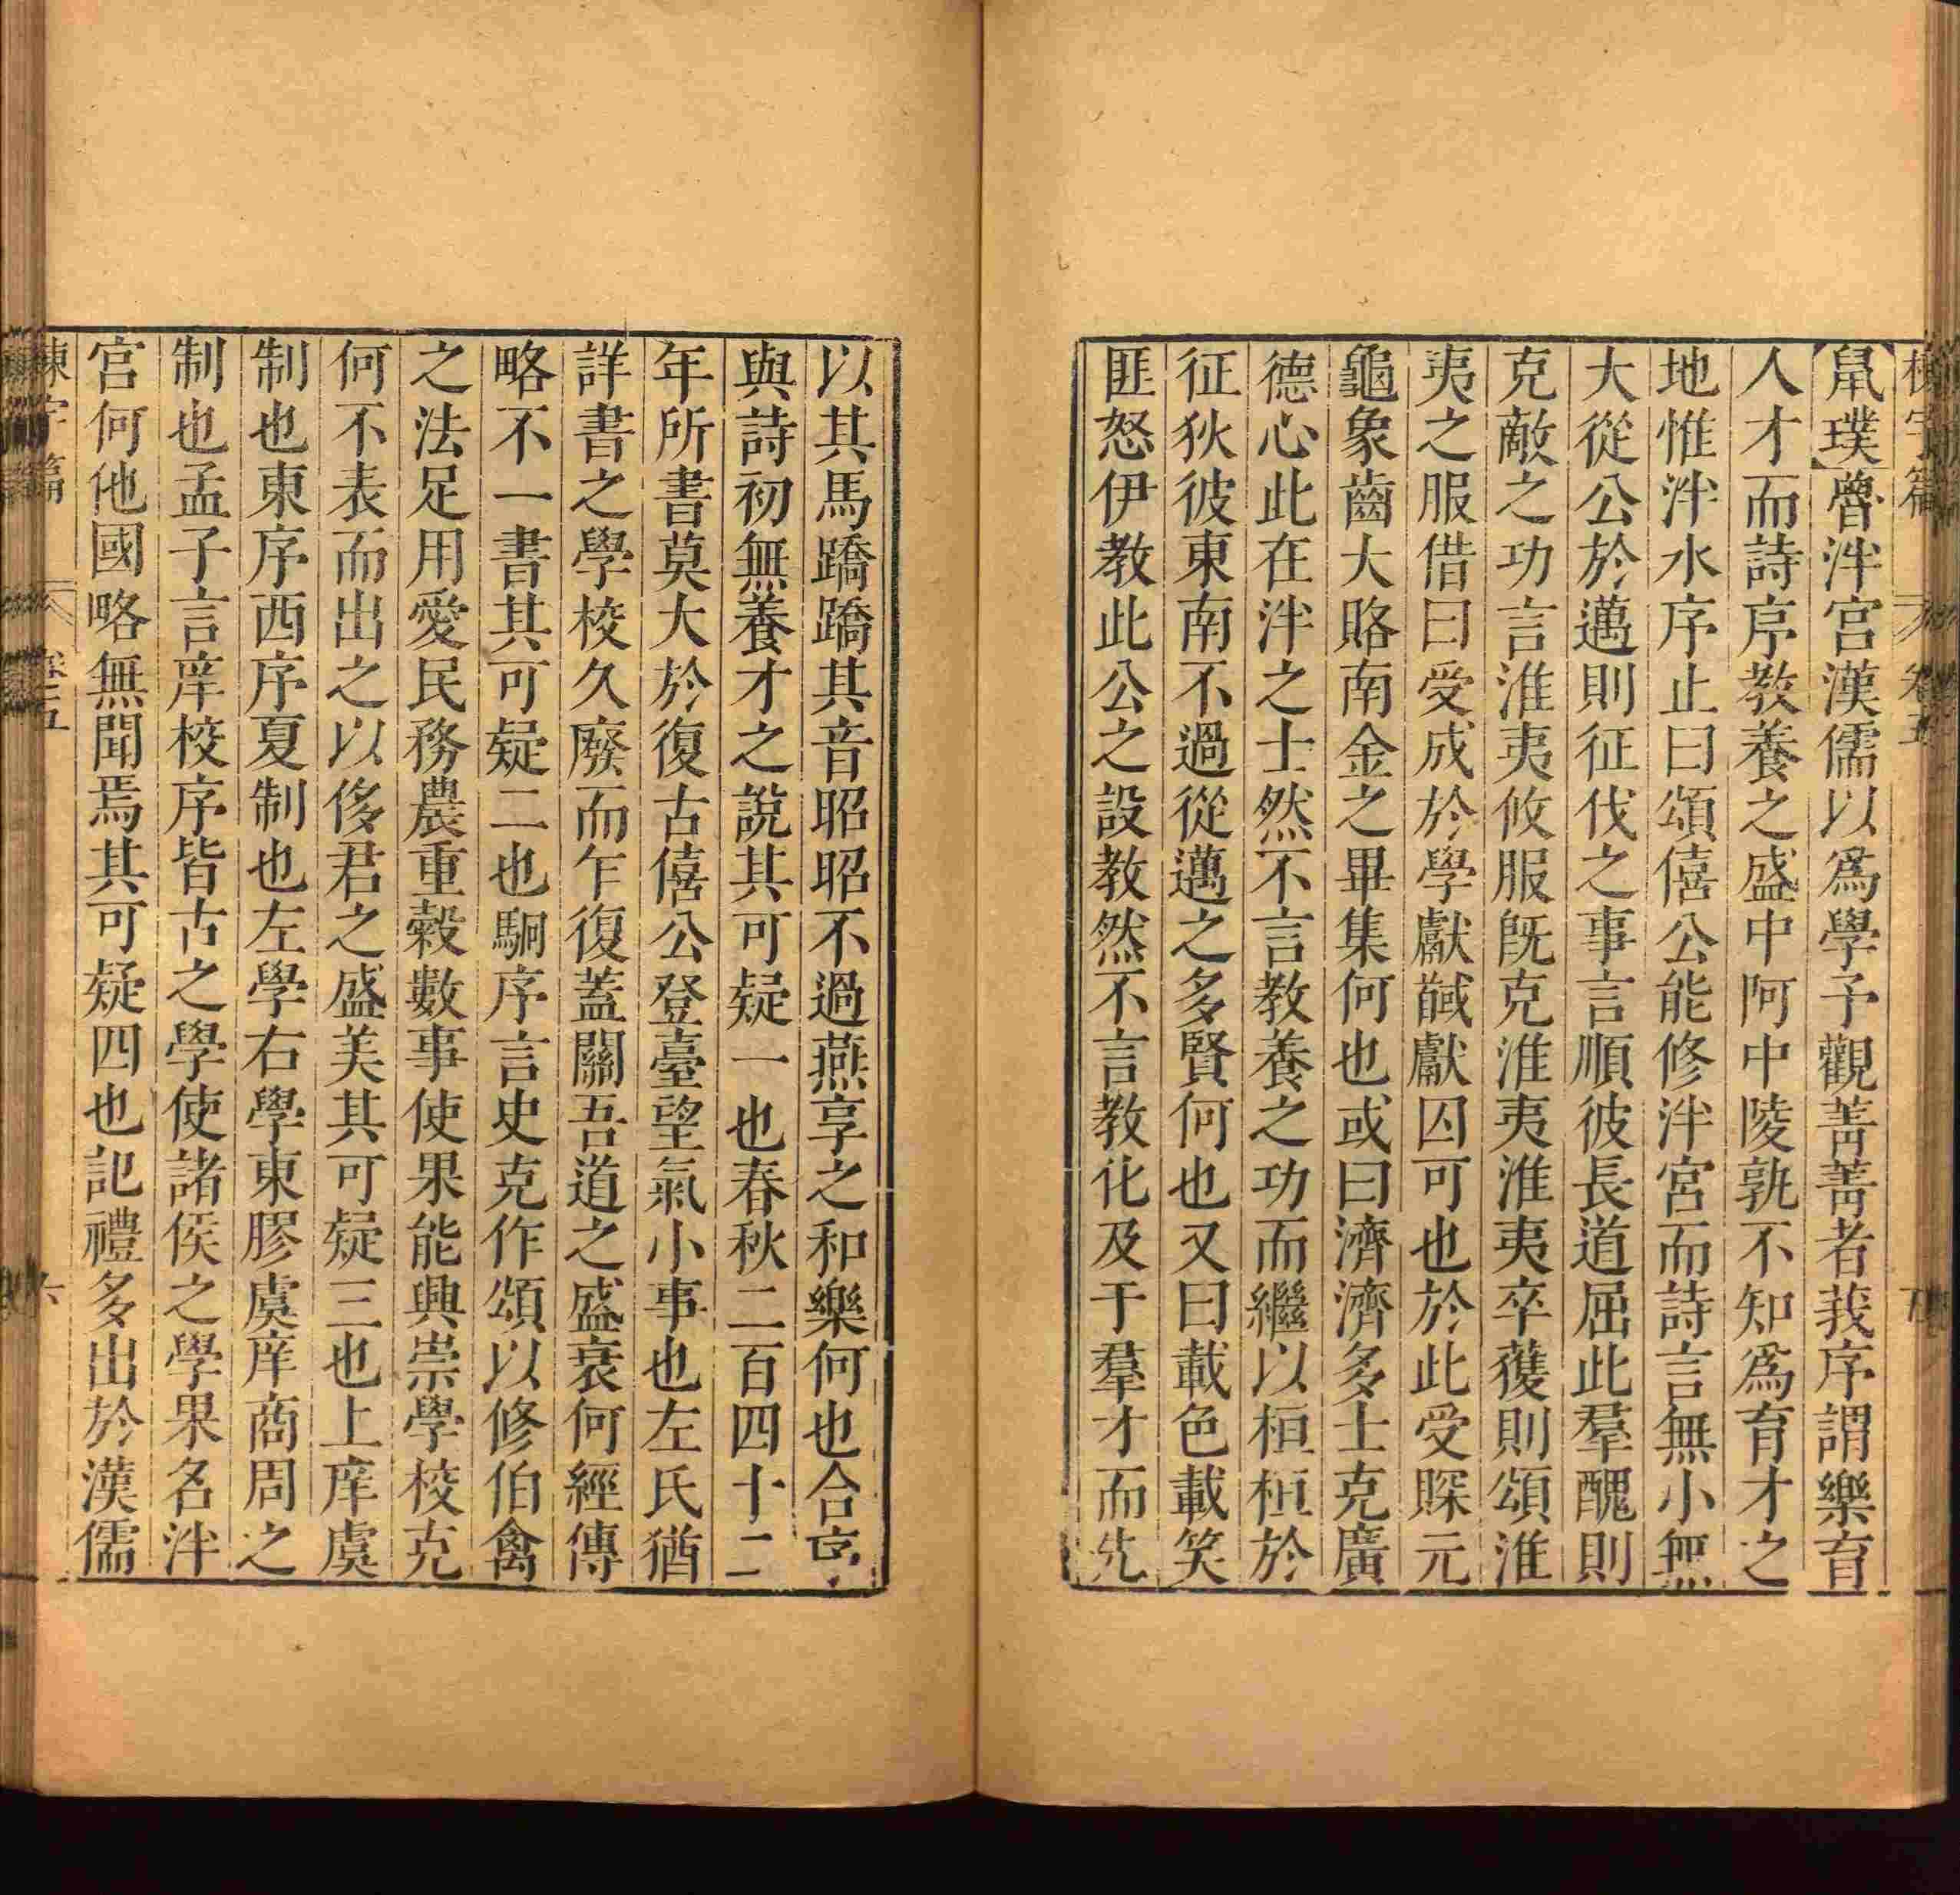 鼠璞魯泮宮漢儒以爲學予觀菁菁者莪序謂樂育
人才而詩序教養之盛中阿中陵孰不知爲育才之
地惟泮水序止曰頌僖公能修泮宮而詩言無小無
大從公於邁則征伐之事言順彼長道屈此羣醜則
克敵之功言淮夷攸服旣克淮夷淮夷卒獲則頌淮
夷之服借曰受成於學獻馘獻囚可也於此受琛元
龜象齒大賂南金之畢集何也或曰濟濟多士克廣
德心此在泮之士然不言教養之功而繼以桓桓於
征狄彼東南不過從邁之多賢何也又曰載色載笑
匪怒伊教此公之設教然不言教化及于羣才而先
以其馬蹻蹻其音昭昭不過燕享之和樂何也合序
與詩初無養才之說其可疑一也春秋二百四十二
年所書莫大於復古僖公登臺望氣小事也左氏猶
詳書之學校久廢而乍復蓋關吾道之盛衰何經傳
略不一書其可疑二也駉序言史克作頌以修伯禽
之法足用愛民務農重穀數事使果能興崇學校克
何不表而出之以侈君之盛美其可疑三也上庠虞
制也東序西序夏制也左學右學東膠虞庠商周之
制也孟子言庠校序皆古之學使諸侯之學果名泮
宮何他國略無聞焉其可疑四也記禮多出於漢儒